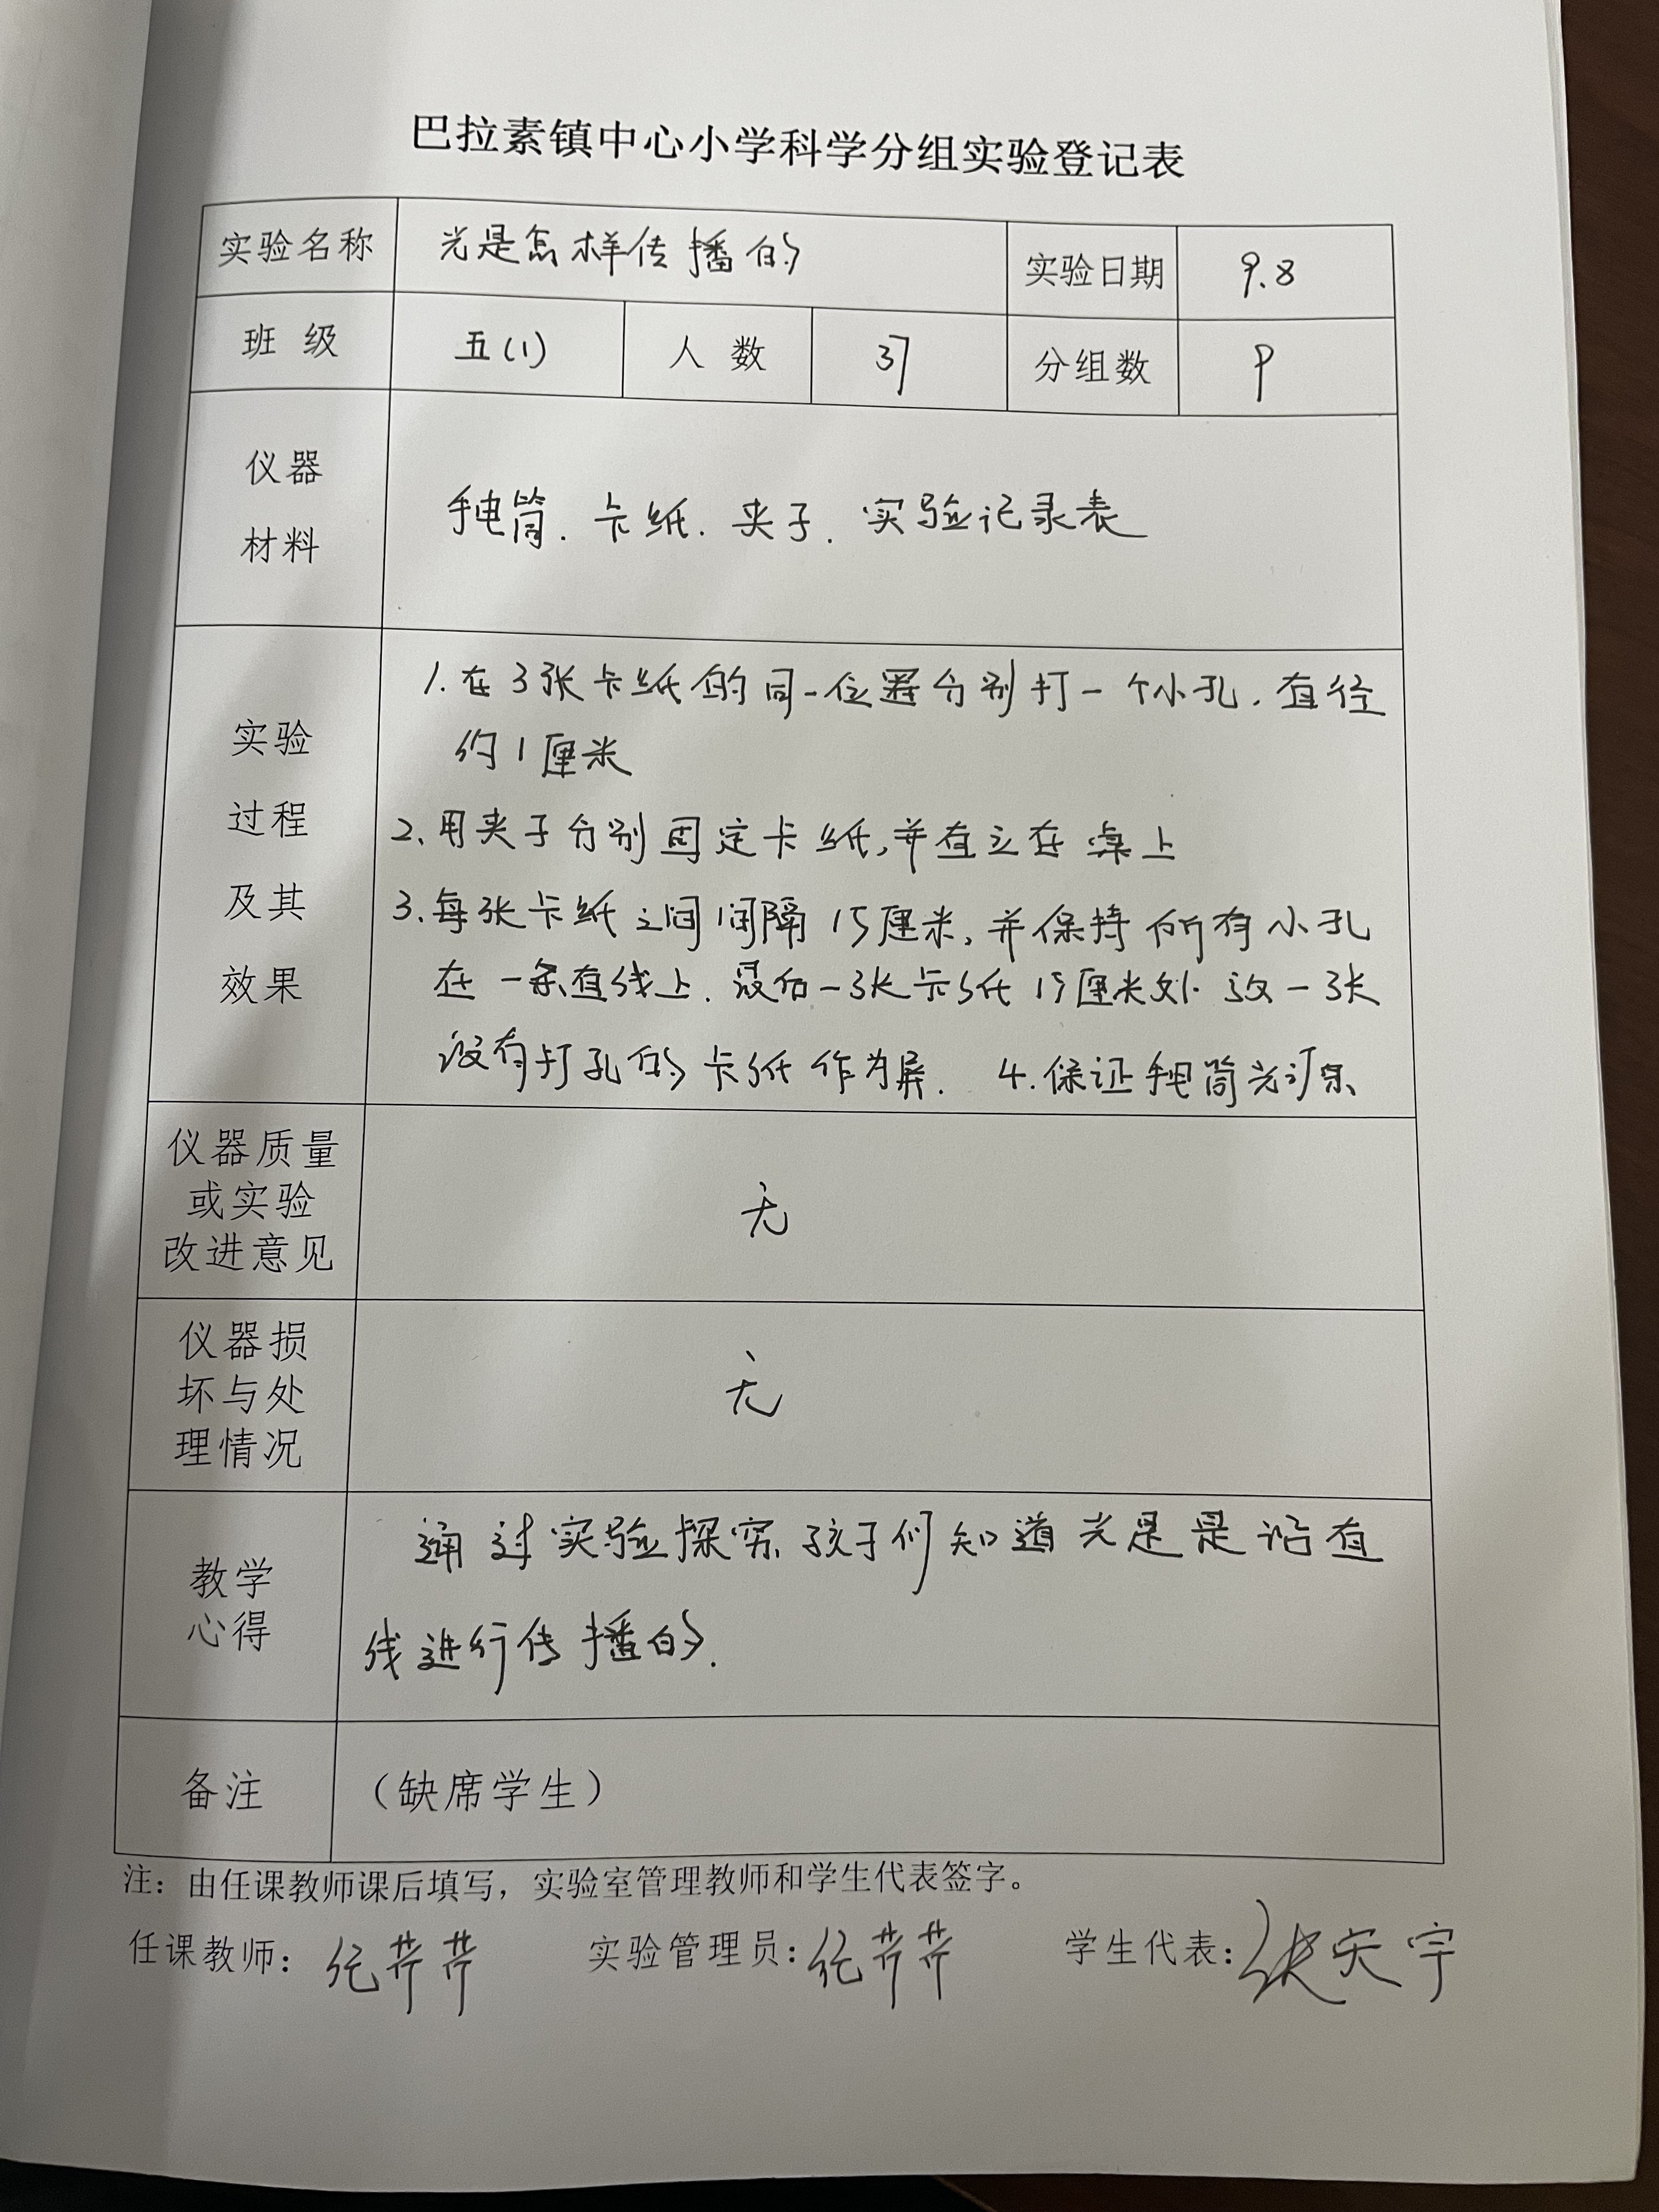 巴拉素镇中心小学科学分组实验登记表
实验名称 光是怎样传播的 实验日期 9.8
班级 五(1) 人数 37 分组数 9
仪器
材料
手电筒.卡纸.夹子.实验记录表
实验
过程
及其
效果
1.在3张卡纸的同一位置分别打一个小孔.直径
约1厘米
2.用夹子分别固定卡纸,并直立在桌上
3.每张卡纸之间间隔15厘米,并保持所有小孔
在一条直线上.最后一张卡纸15厘米处放一张
没有打孔的卡纸作为屏. 4.保证手电筒光
仪器质量
或实验
改进意见
无
仪器损
坏与处
理情况
无
教学
心得
通过实验探究,孩子们知道光是是沿直
线进行传播的.
备注 （缺席学生）
注：由任课教师课后填写，实验室管理教师和学生代表签字。
任课教师：纪芹芹 实验管理员：纪芹芹 学生代表：张天宇